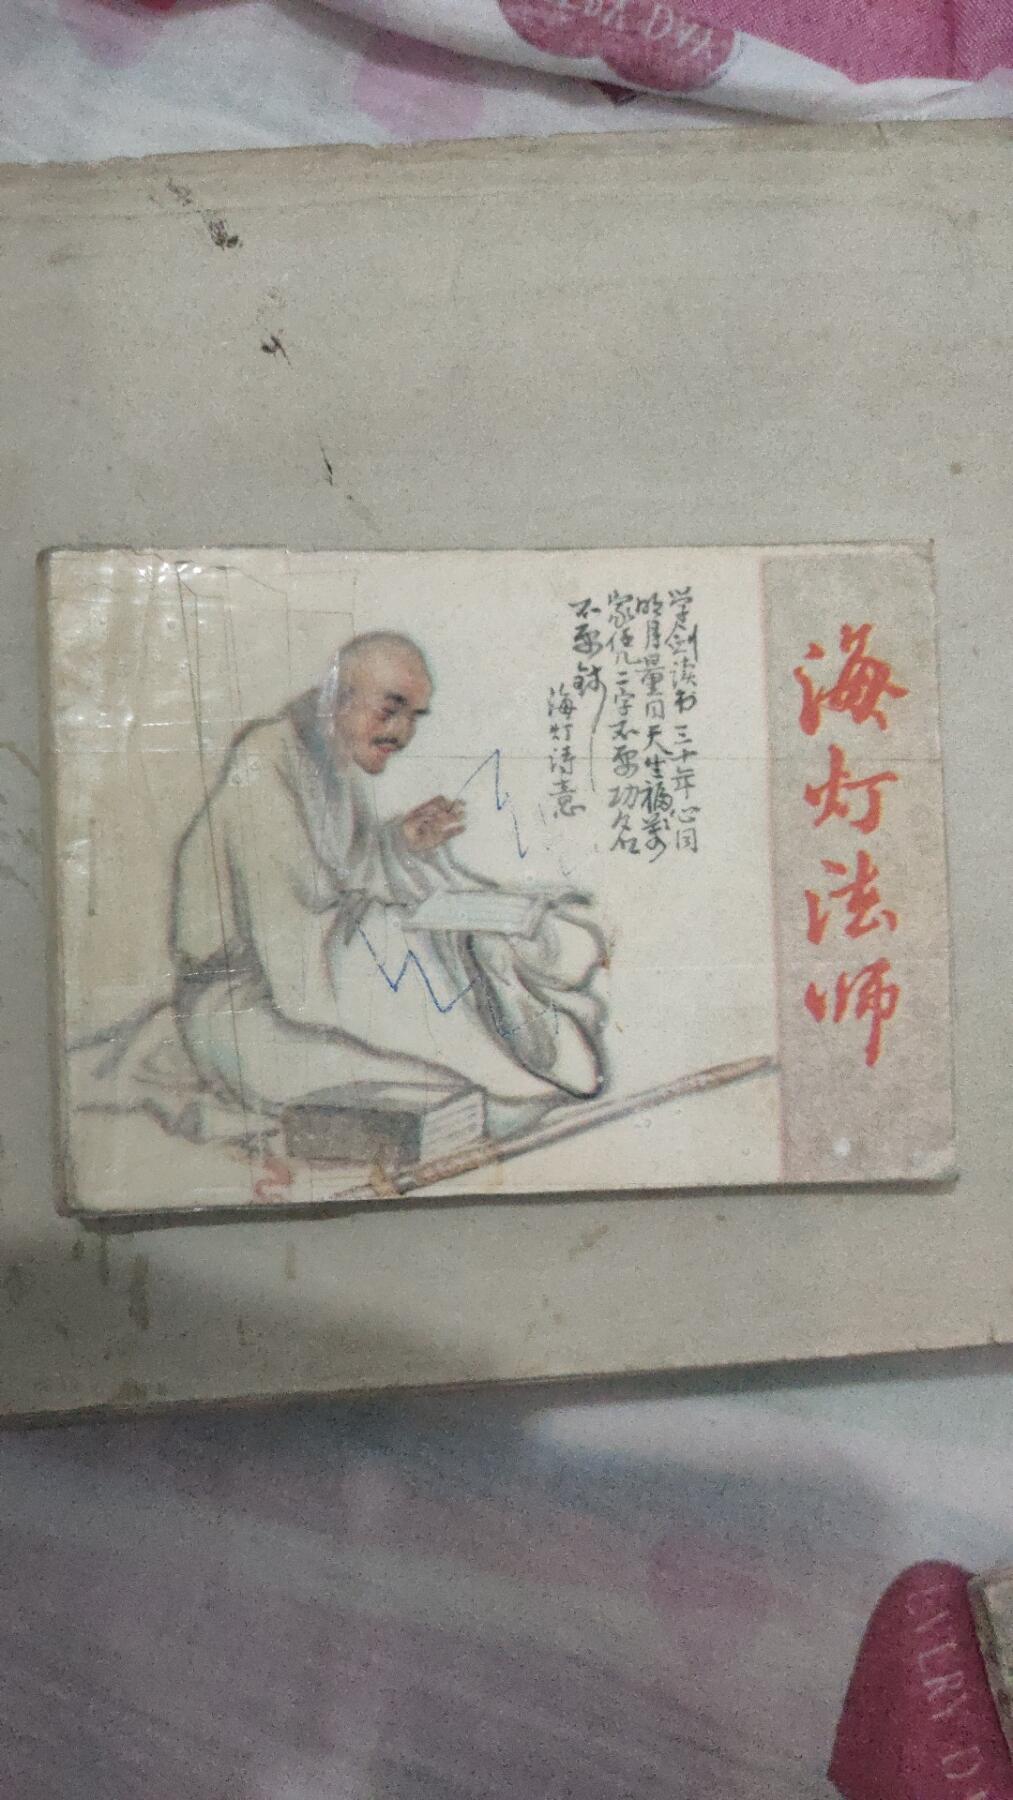 海灯法师
学剑读书三十年心同
明月量同天生福萬
家凭二字不要功名
不要钱
海灯诗意